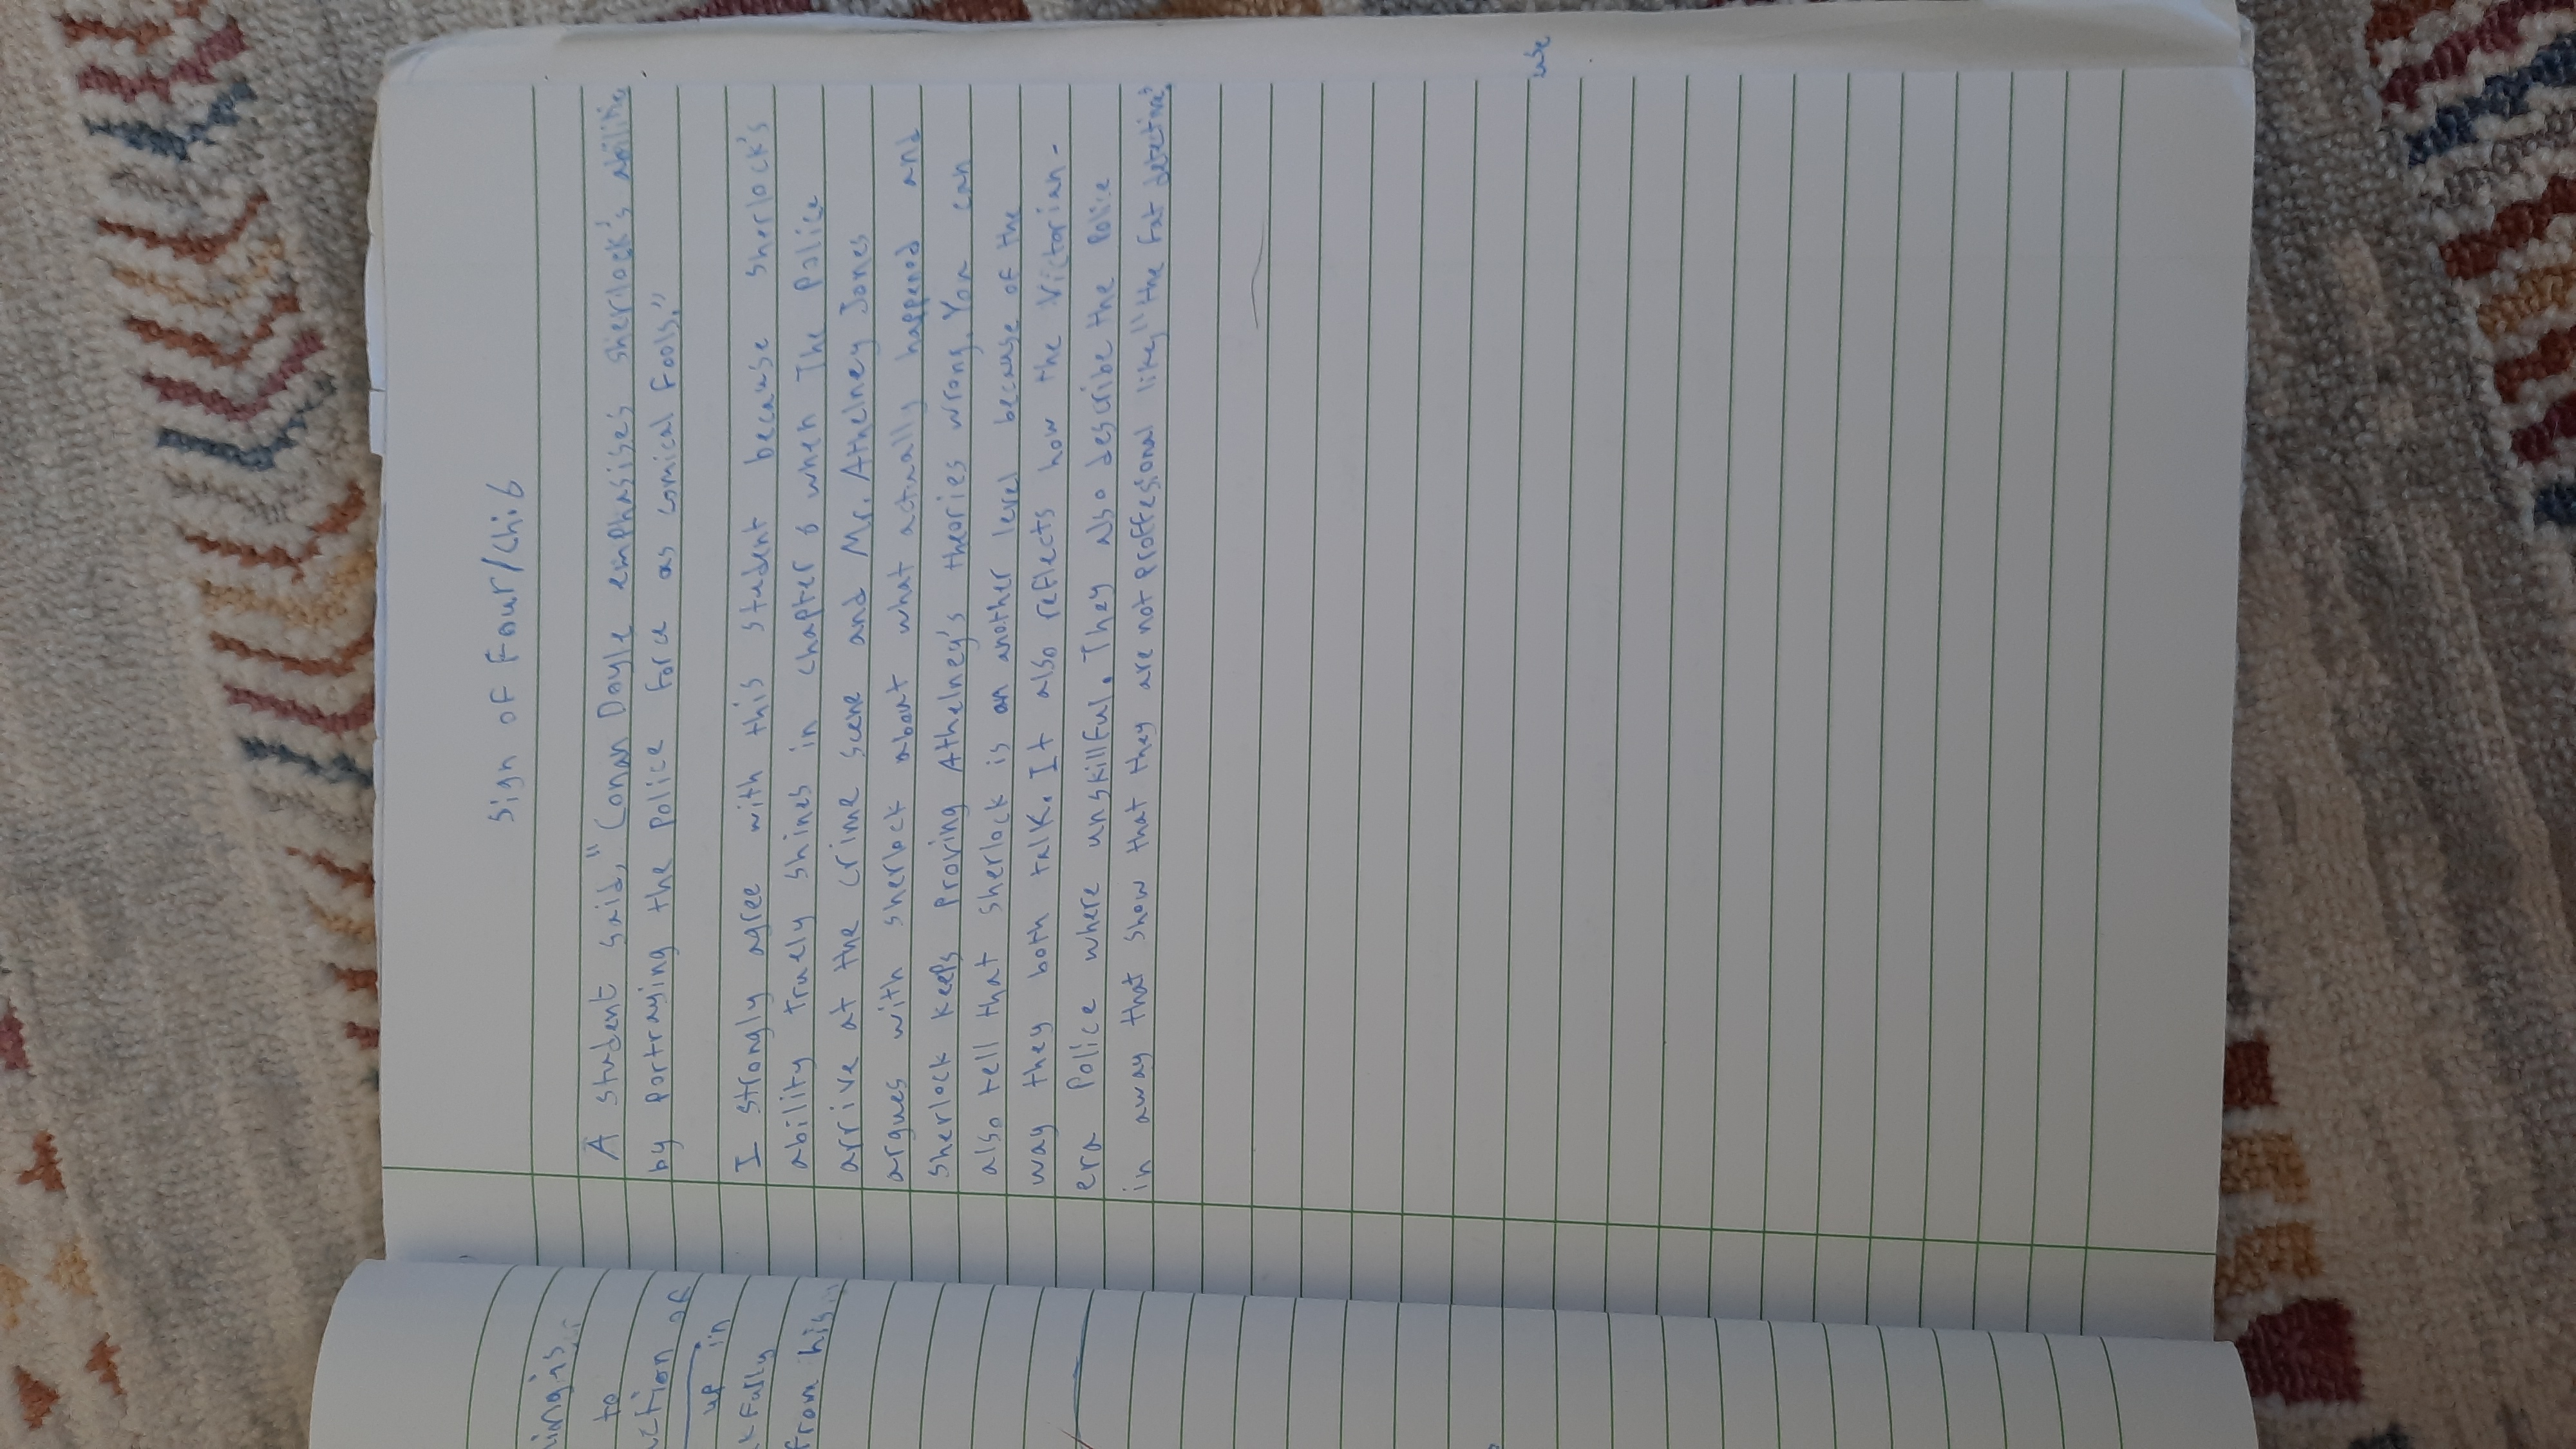 Sign of Four/Ch:6
A student said, "Conan Doyle emphasises sherlock's abilities
by portraying the police force as comical fools."
I strongly agree with this student because sherlock's
ability truely shines in chapter 6 when The Police
arrive at the crime scene and Mr. Athelney Jones
argues with sherlock about what actually happened and
sherlock keeps proving Athelney's theories wrong. You can
also tell that sherlock is on another level because of the
way they both talk. It also reflects how the Victorian-
era Police where unskillful. They also describe the Police
in away that show that they are not proffesional like, "the fat detective"
ing is
to
ction of
up in
k fully
from his